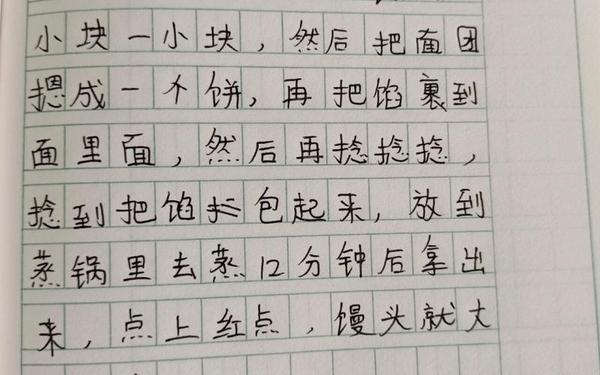 小块一小块，然后把面团
摁成一个饼，再把馅裹到
面里面，然后再捻捻捻，
捻到把馅拦包起来，放到
蒸锅里去蒸12分钟后拿出
来，点上红点，馒头就大